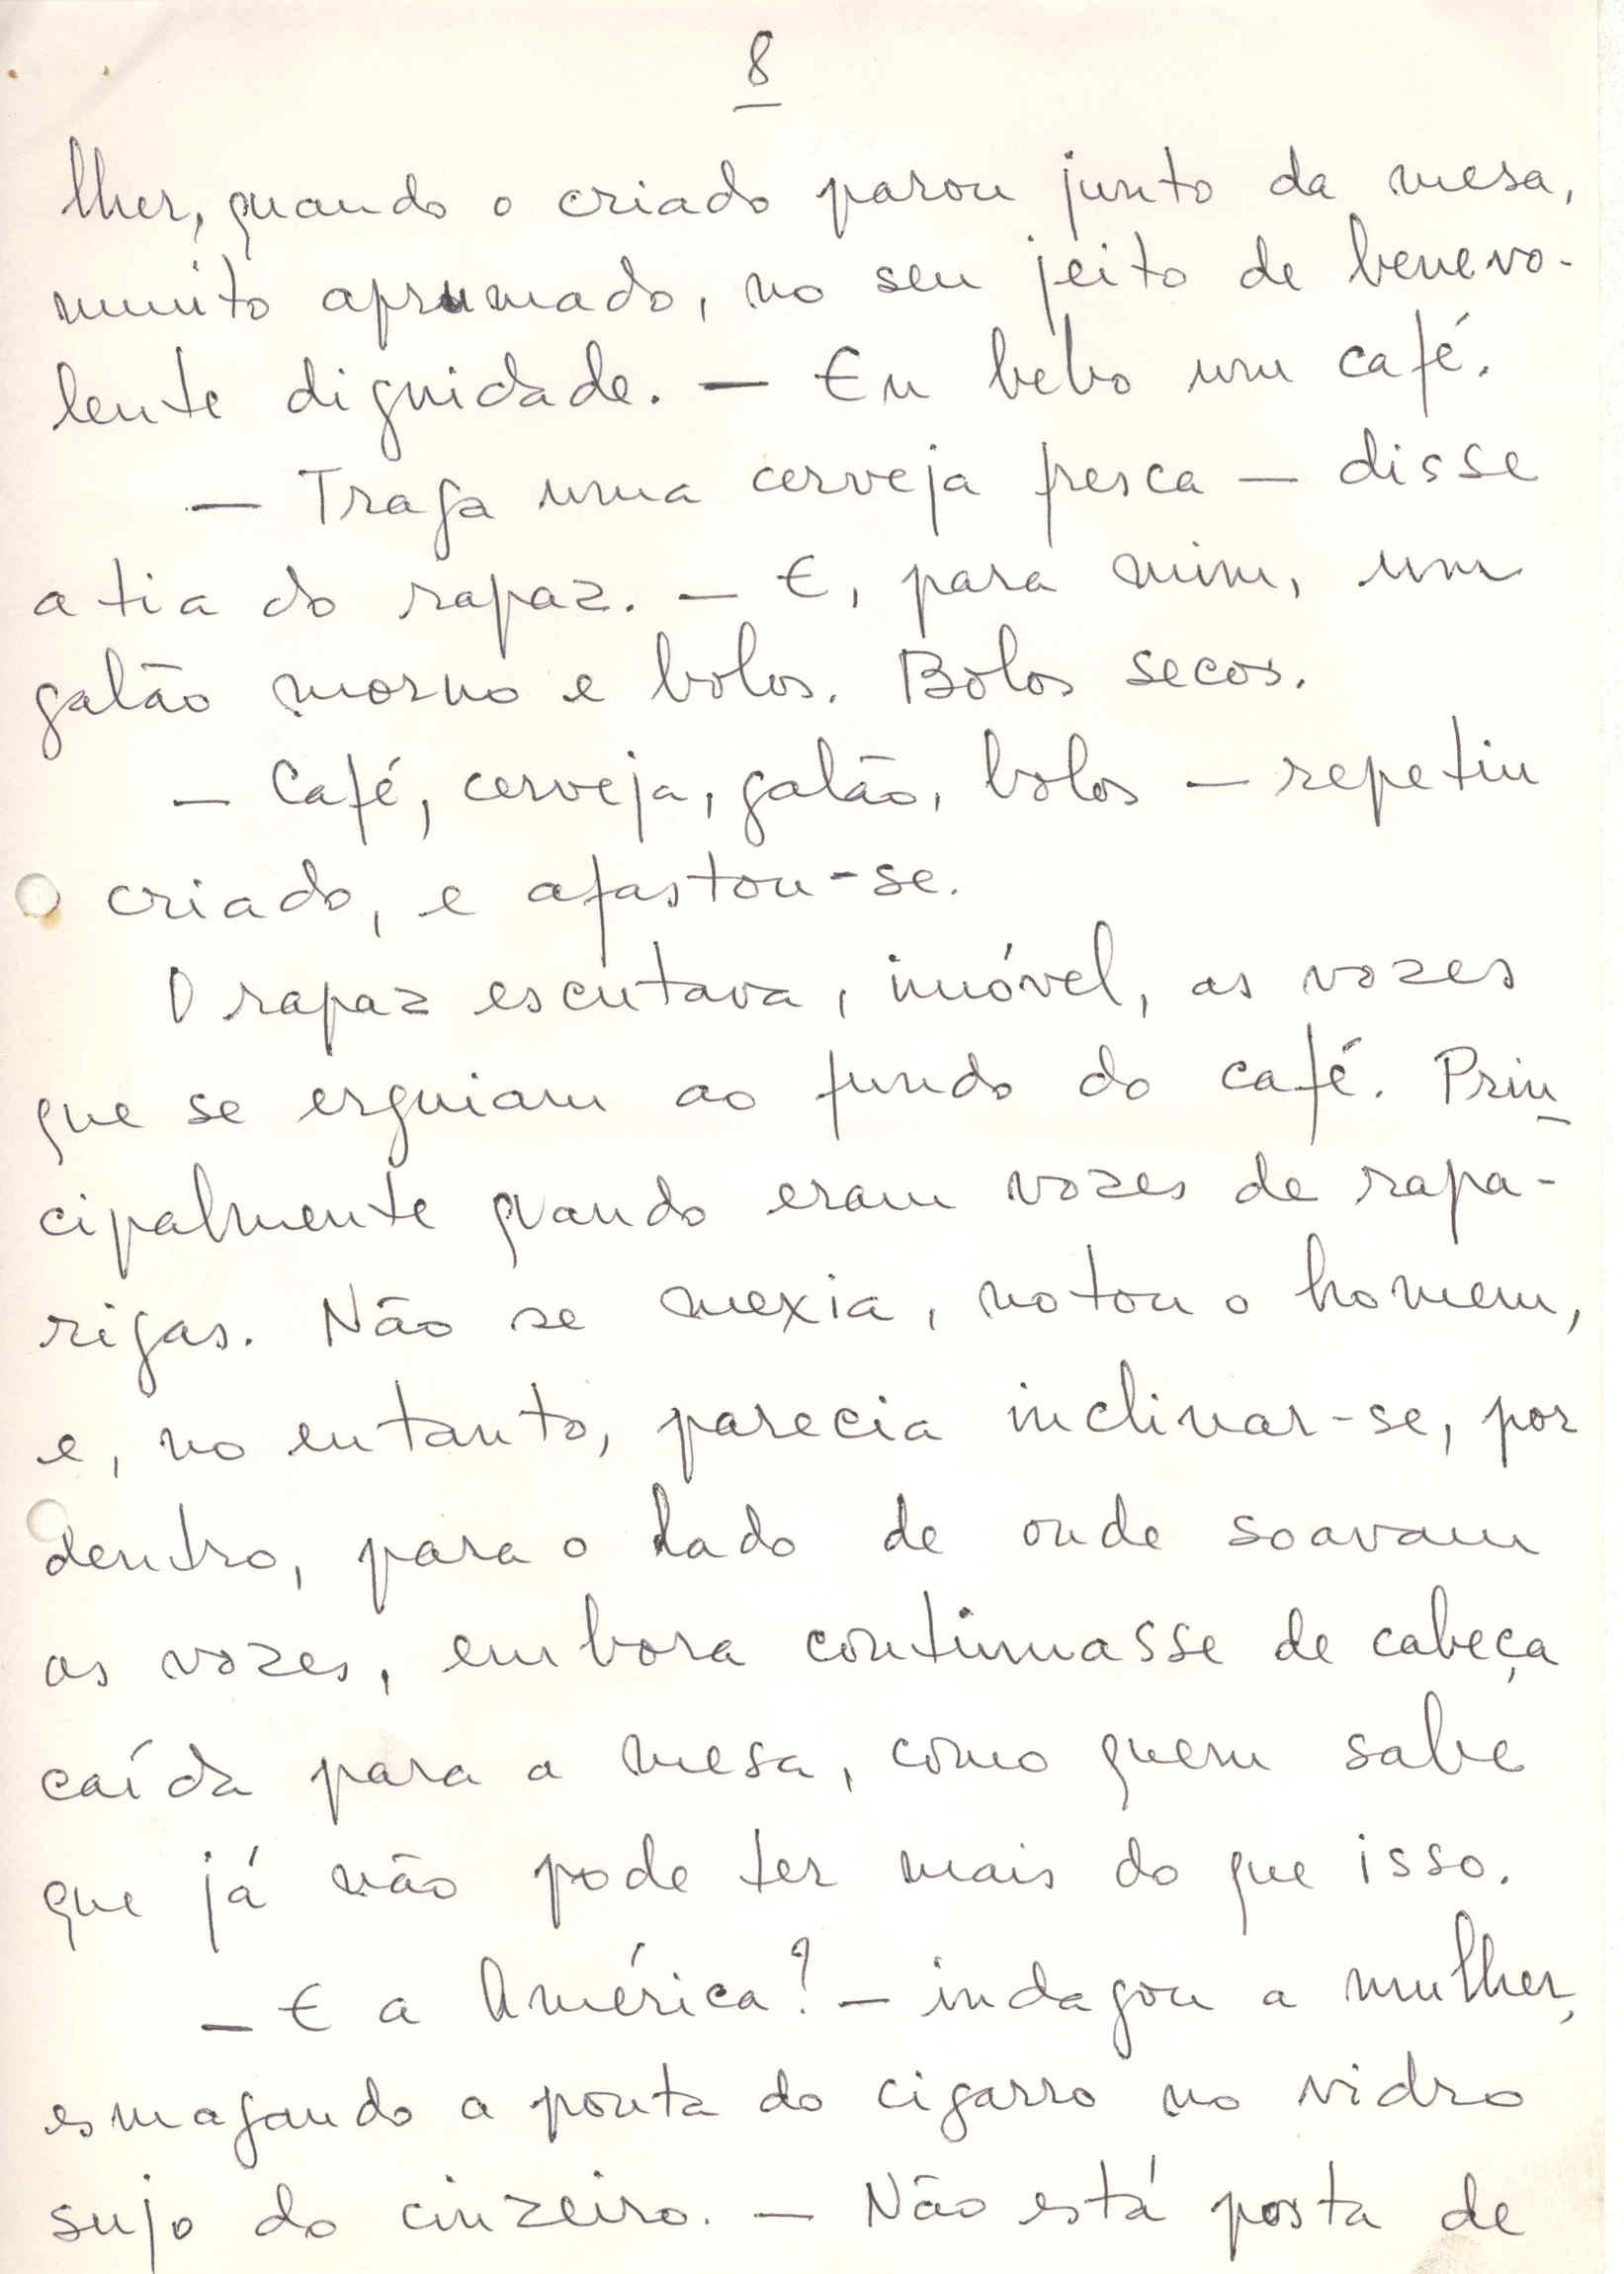 8
lher, quando o criado parou junto da mesa,
muito aprumado, no seu jeito de benevo-
lente dignidade. — Eu bebo um café.
— Traga uma cerveja fresca — disse
a tia do rapaz. — E, para mim, um
galão morno e bolos. Bolos secos.
— Café, cerveja, galão, bolos — repetiu
o criado, e afastou-se.
O rapaz escutava, imóvel, as vozes
que se erguiam ao fundo do café. Prin-
cipalmente quando eram vozes de rapa-
rigas. Não se mexia, notou o homem,
e, no entanto, parecia inclinar-se, por
dentro, para o lado de onde soavam
as vozes, embora continuasse de cabeça
caída para a mesa, como quem sabe
que já não pode ter mais do que isso.
— E a América? — indagou a mulher,
esmagando a ponta do cigarro no vidro
sujo do cinzeiro. — Não está posta de